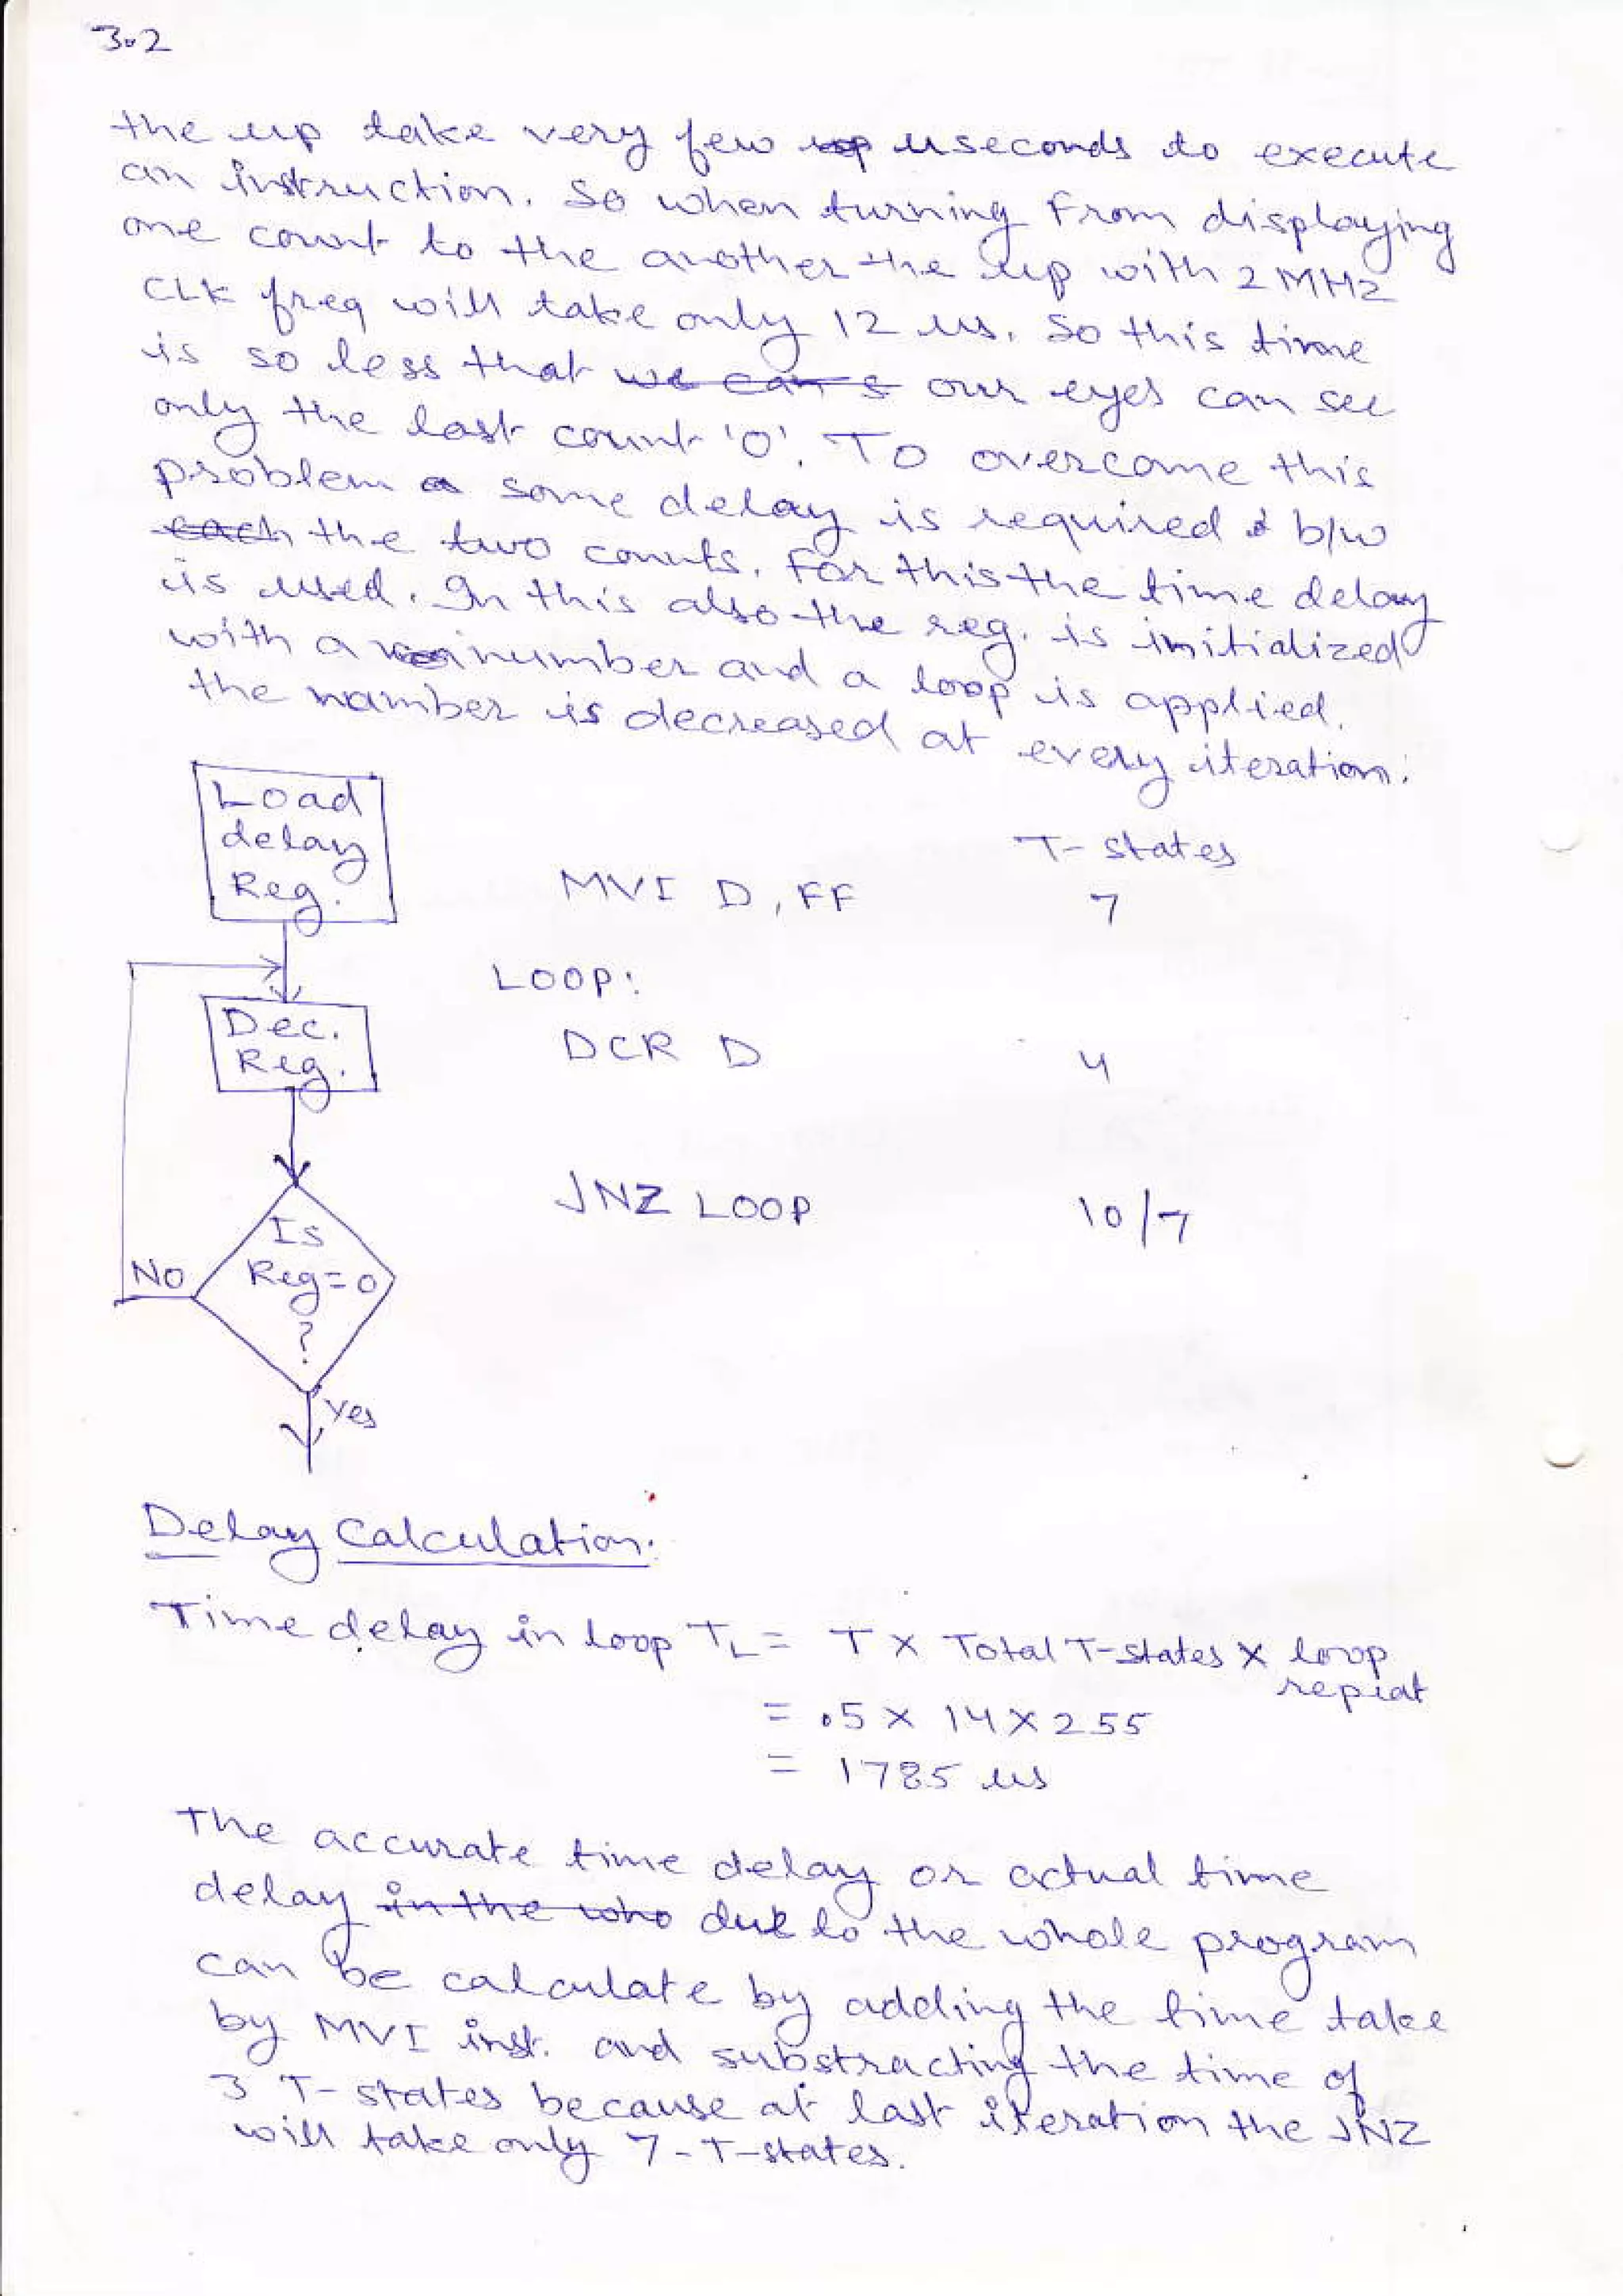 3.2
the up take very few useconds to execute
an instruction. So when turning From displaying
one count to the another the up with 2 MHz
CLK freq will take only 12 us. So this time
is so less that we can s our eyes can see
only the last count '0'. To overcome this
problem a some delay is required b/w
each the two counts. For this the time delay
is used. In this also the reg. is initialized
with a number and a loop is applied.
the number is decreased at every iteration.
Load
delay
Reg.
T- states
MVI D, FF 7
LOOP:
Dec.
Reg.
DCR D 4
JNZ LOOP 10/7
Is
Reg=0
?
No
Yes
Delay Calculation.
Time delay in loop TL = T x Total T-states x loop
repeat
= .5 x 14 x 255
= 1785 us
The accurate time delay or actual time
delay in the who due to the whole program
can be calculate by adding the time take
by MVI inst. and substracting the time of
3 T- states because at last iteration the JNZ
will take only 7-T-states.